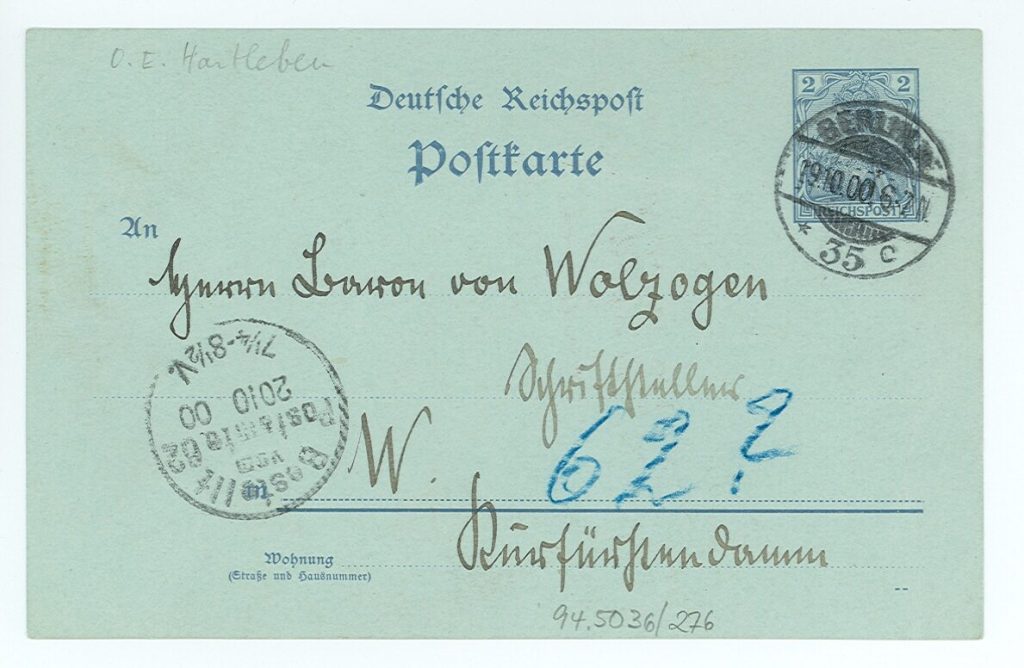 O. E. Hartleben
Deutsche Reichspost
Postkarte
2 2
REICHSPOST
BERLIN.W.
19.10.00 6-7 N.
* 35 c
An
Herrn Baron von Wolzogen
Schriftsteller
7¼-8½V.
20.10
00
Postamte 62
vom
Bestellt
in W. 62 ?
Kurfürstendamm
Wohnung
(Straße und Hausnummer)
94.5036/276